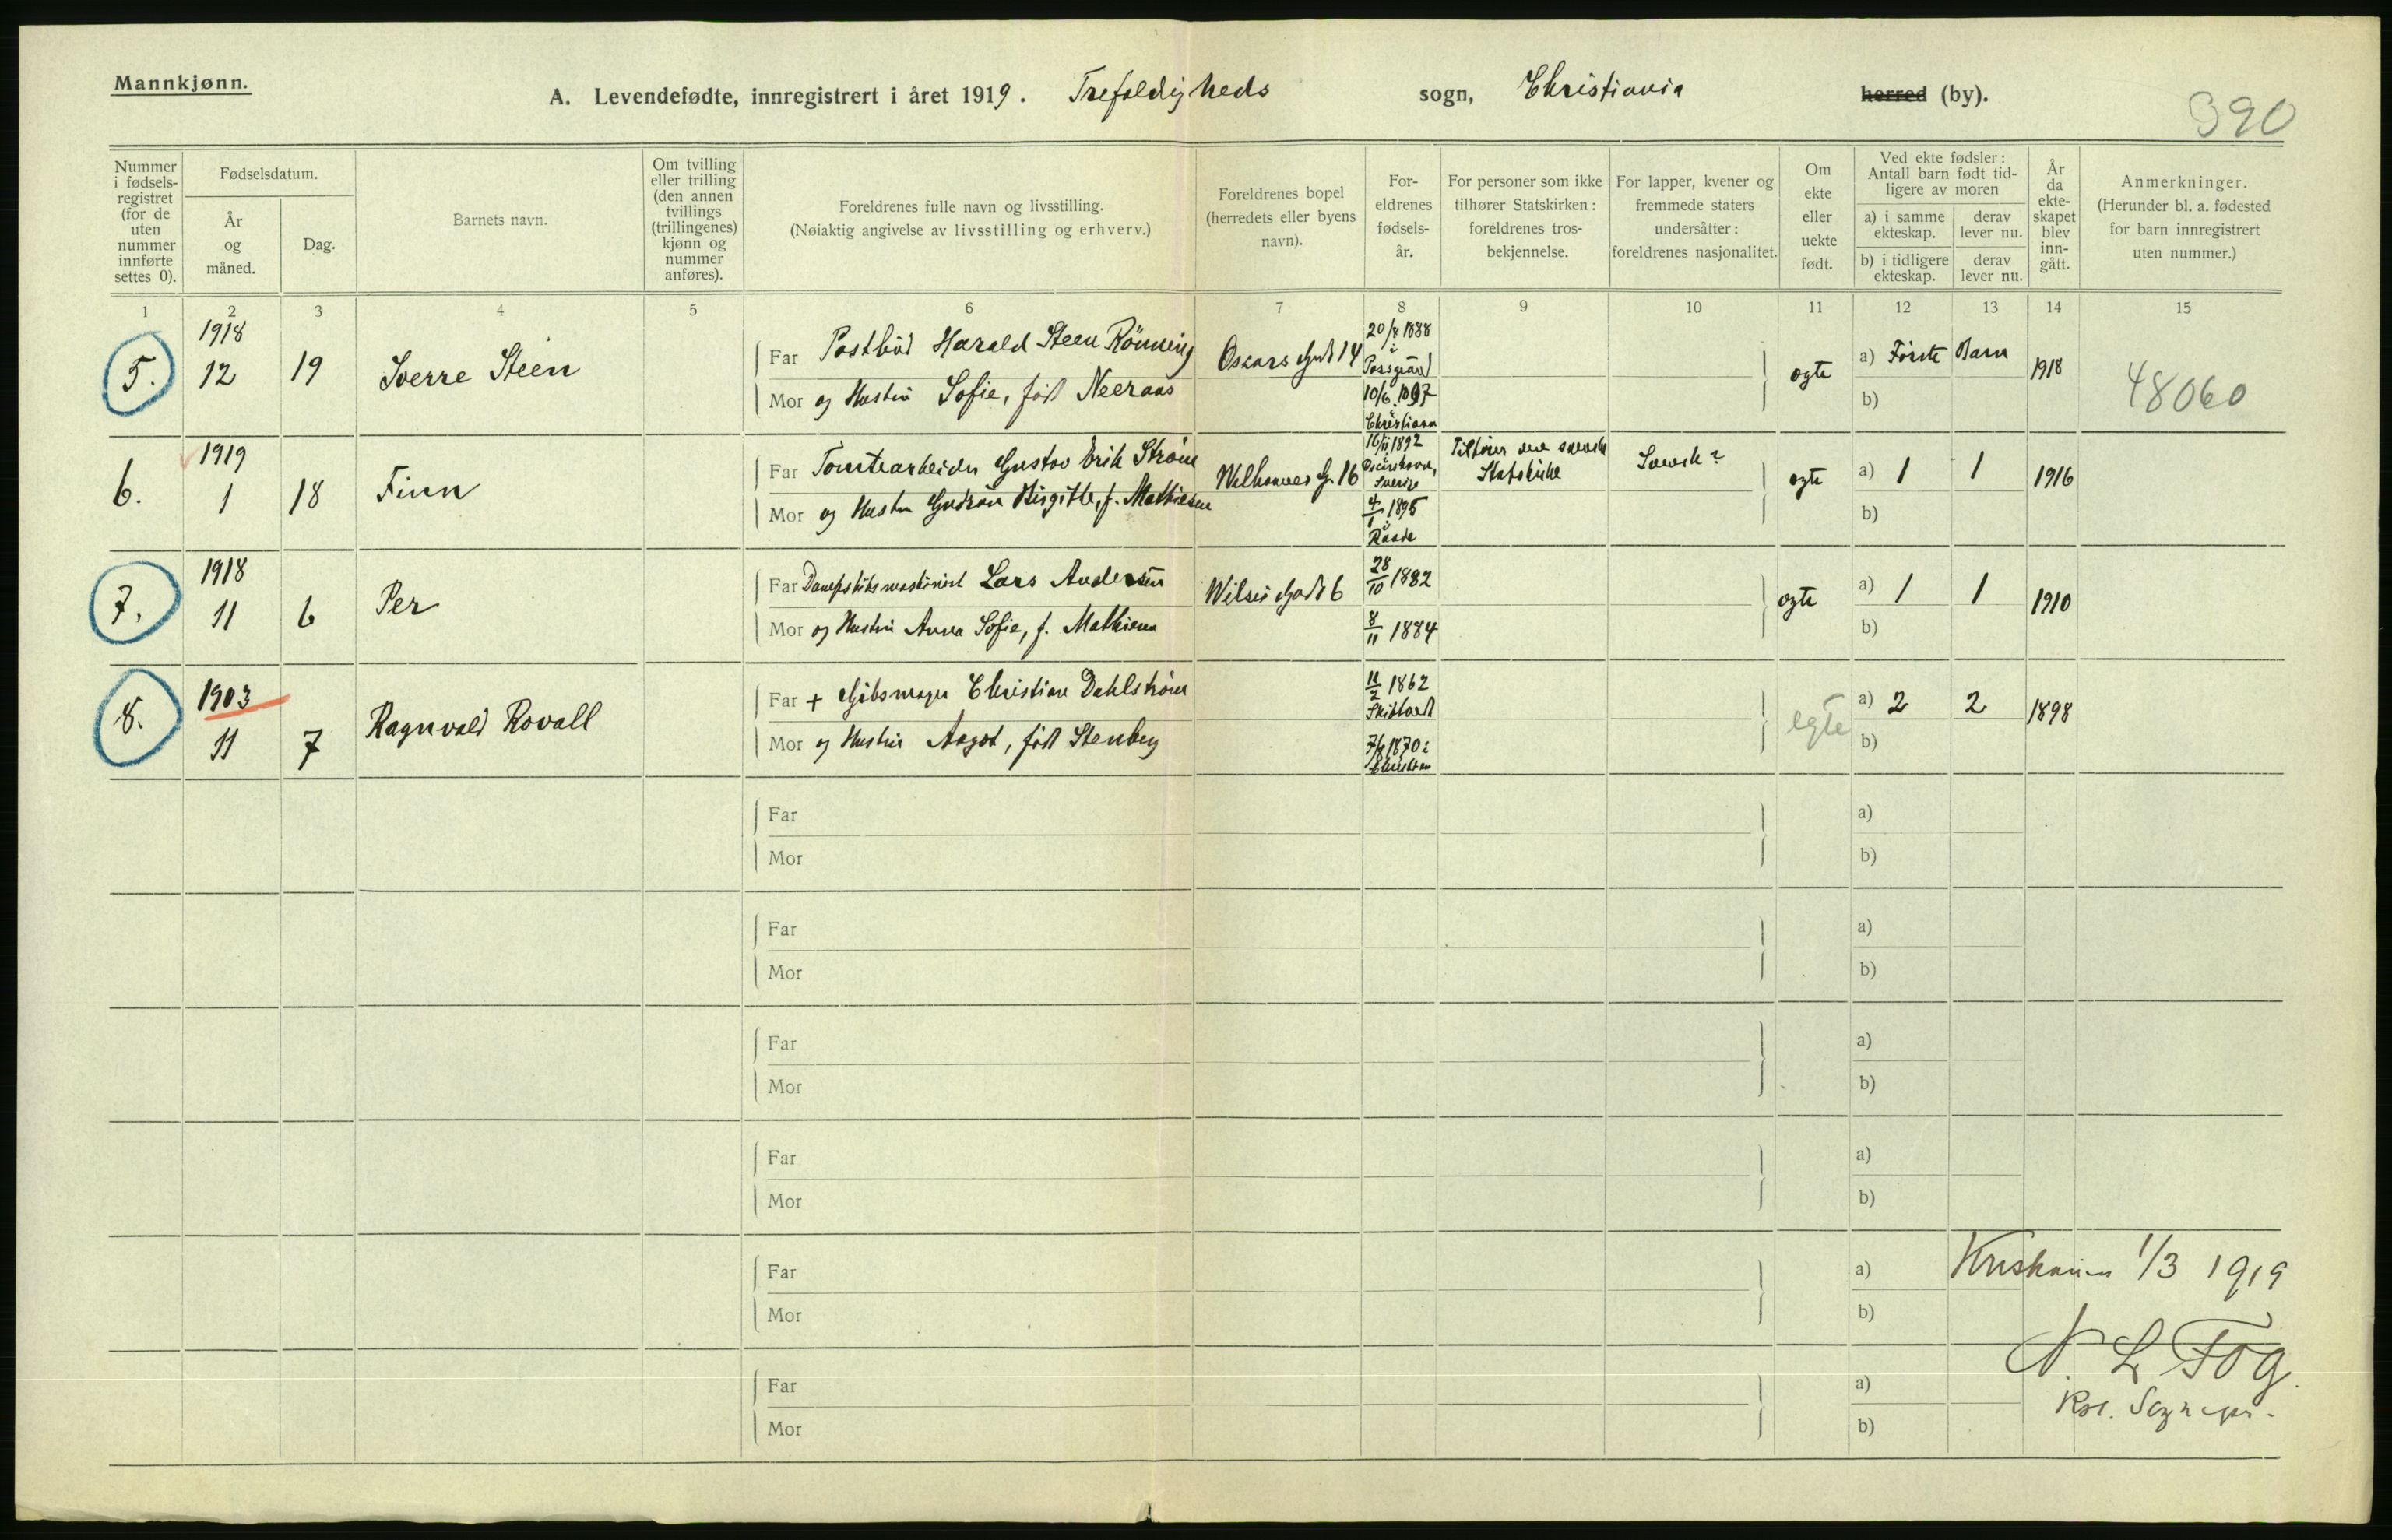 Mannkjønn.
A. Levendefødte, innregistrert i året 1919. Trefoldigheds sogn, Christiania herred (by).
390
Nummer i fødsels-registret (for de uten nummer innførte settes 0).
Fødselsdatum.
År og måned.
Dag.
Barnets navn.
Om tvilling eller trilling (den annen tvillings (trillingenes) kjønn og nummer anføres).
Foreldrenes fulle navn og livsstilling.
(Nøiaktig angivelse av livsstilling og erhverv.)
Foreldrenes bopel (herredets eller byens navn).
For-eldrenes fødsels-år.
For personer som ikke tilhører Statskirken: foreldrenes tros-bekjennelse.
For lapper, kvener og fremmede staters undersåtter: foreldrenes nasjonalitet.
Om ekte eller uekte født.
Ved ekte fødsler: Antall barn født tid-ligere av moren
a) i samme ekteskap.
derav lever nu.
b) i tidligere ekteskap.
derav lever nu.
År da ekte-skapet blev inn-gått.
Anmerkninger.
(Herunder bl. a. fødested for barn innregistrert uten nummer.)
1 2 3 4 5 6 7 8 9 10 11 12 13 14 15
5. 1918 12 19 Sverre Steen
Far Postbud Harald Steen Rönning
Mor og Hustru Sofie, født Neeraas
Oscars Gade 14
1888 i
Christiania
ægte a) Første Barn 1918
b)
48060
6. 1919 1 18 Finn
Far Tomtearbeider Gustav Erik Ström
Mor og Hustru Gudrun Birgitte, f. Mathiesen
16/11 1892
Sverige
4/1 1895 i Raade
Tilhører den svenske Statskirke
Svensk?
ægte a) 1 1 1916
b)
7. 1918 11 6 Per
Far Lars Andersen
Mor og Hustru Anna Sofie, f. Mathiesen
Wilses Gade 6
28/10 1882
8/11 1884
ægte a) 1 1 1910
b)
8. 1903 11 7 Ragnvald Rovall
Far + Gibsmager Christian Dahlström
Mor og Hustru Aagot, født Stenberg
11/2 1862
1870 i
egte a) 2 2 1898
b)
Far a)
Mor b)
Far a)
Mor b)
Far a)
Mor b)
Far a)
Mor b)
Far a)
Mor b)
Far a)
Mor b)
Kristiania 1/3 1919
N. L. Fog.